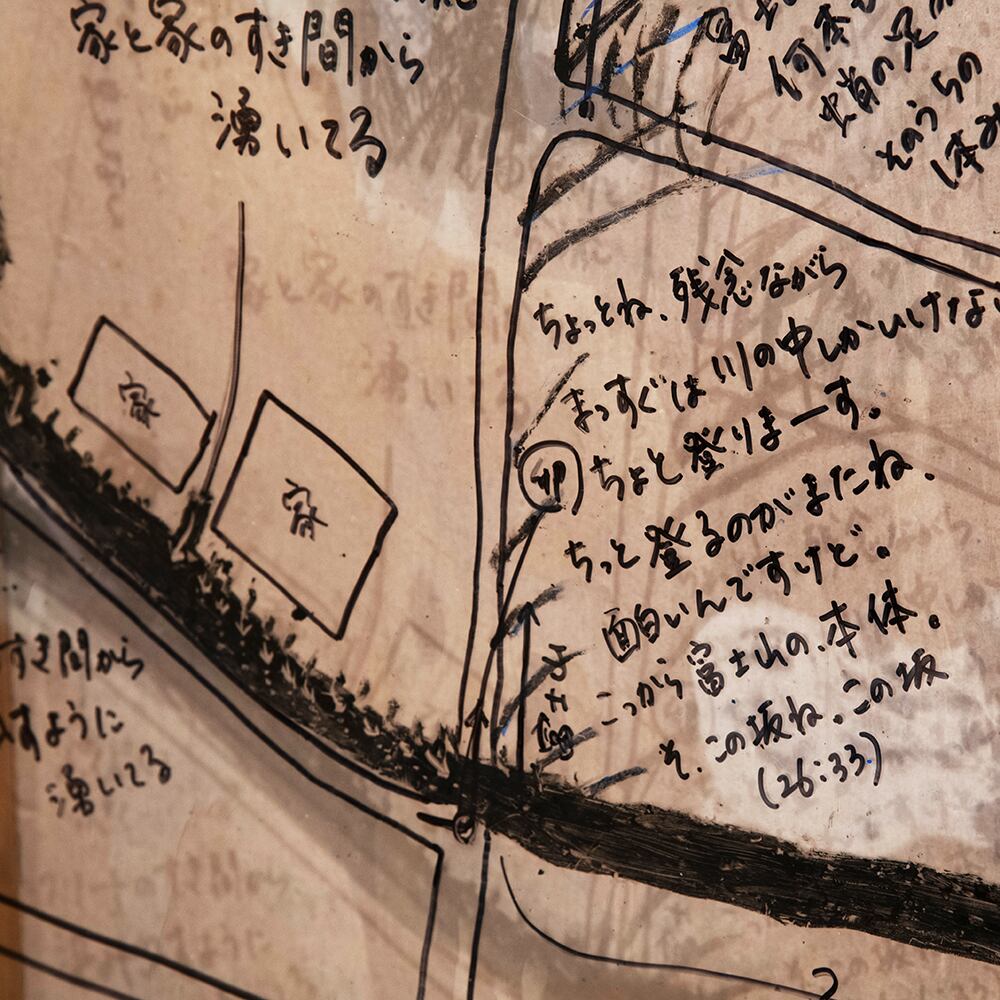 家と家のすき間から
湧いてる
何本
虫歯の足
そのうちの
1本
ちょっとね、残念ながら
まっすぐは川の中しかいけない
ちょと登りまーす。
ちっと登るのがまたね、
面白いんですけど。
こっから富士山の、本体。
そ、この坂ね、この坂
(26:33)
家
家
すき間から
すように
湧いてる